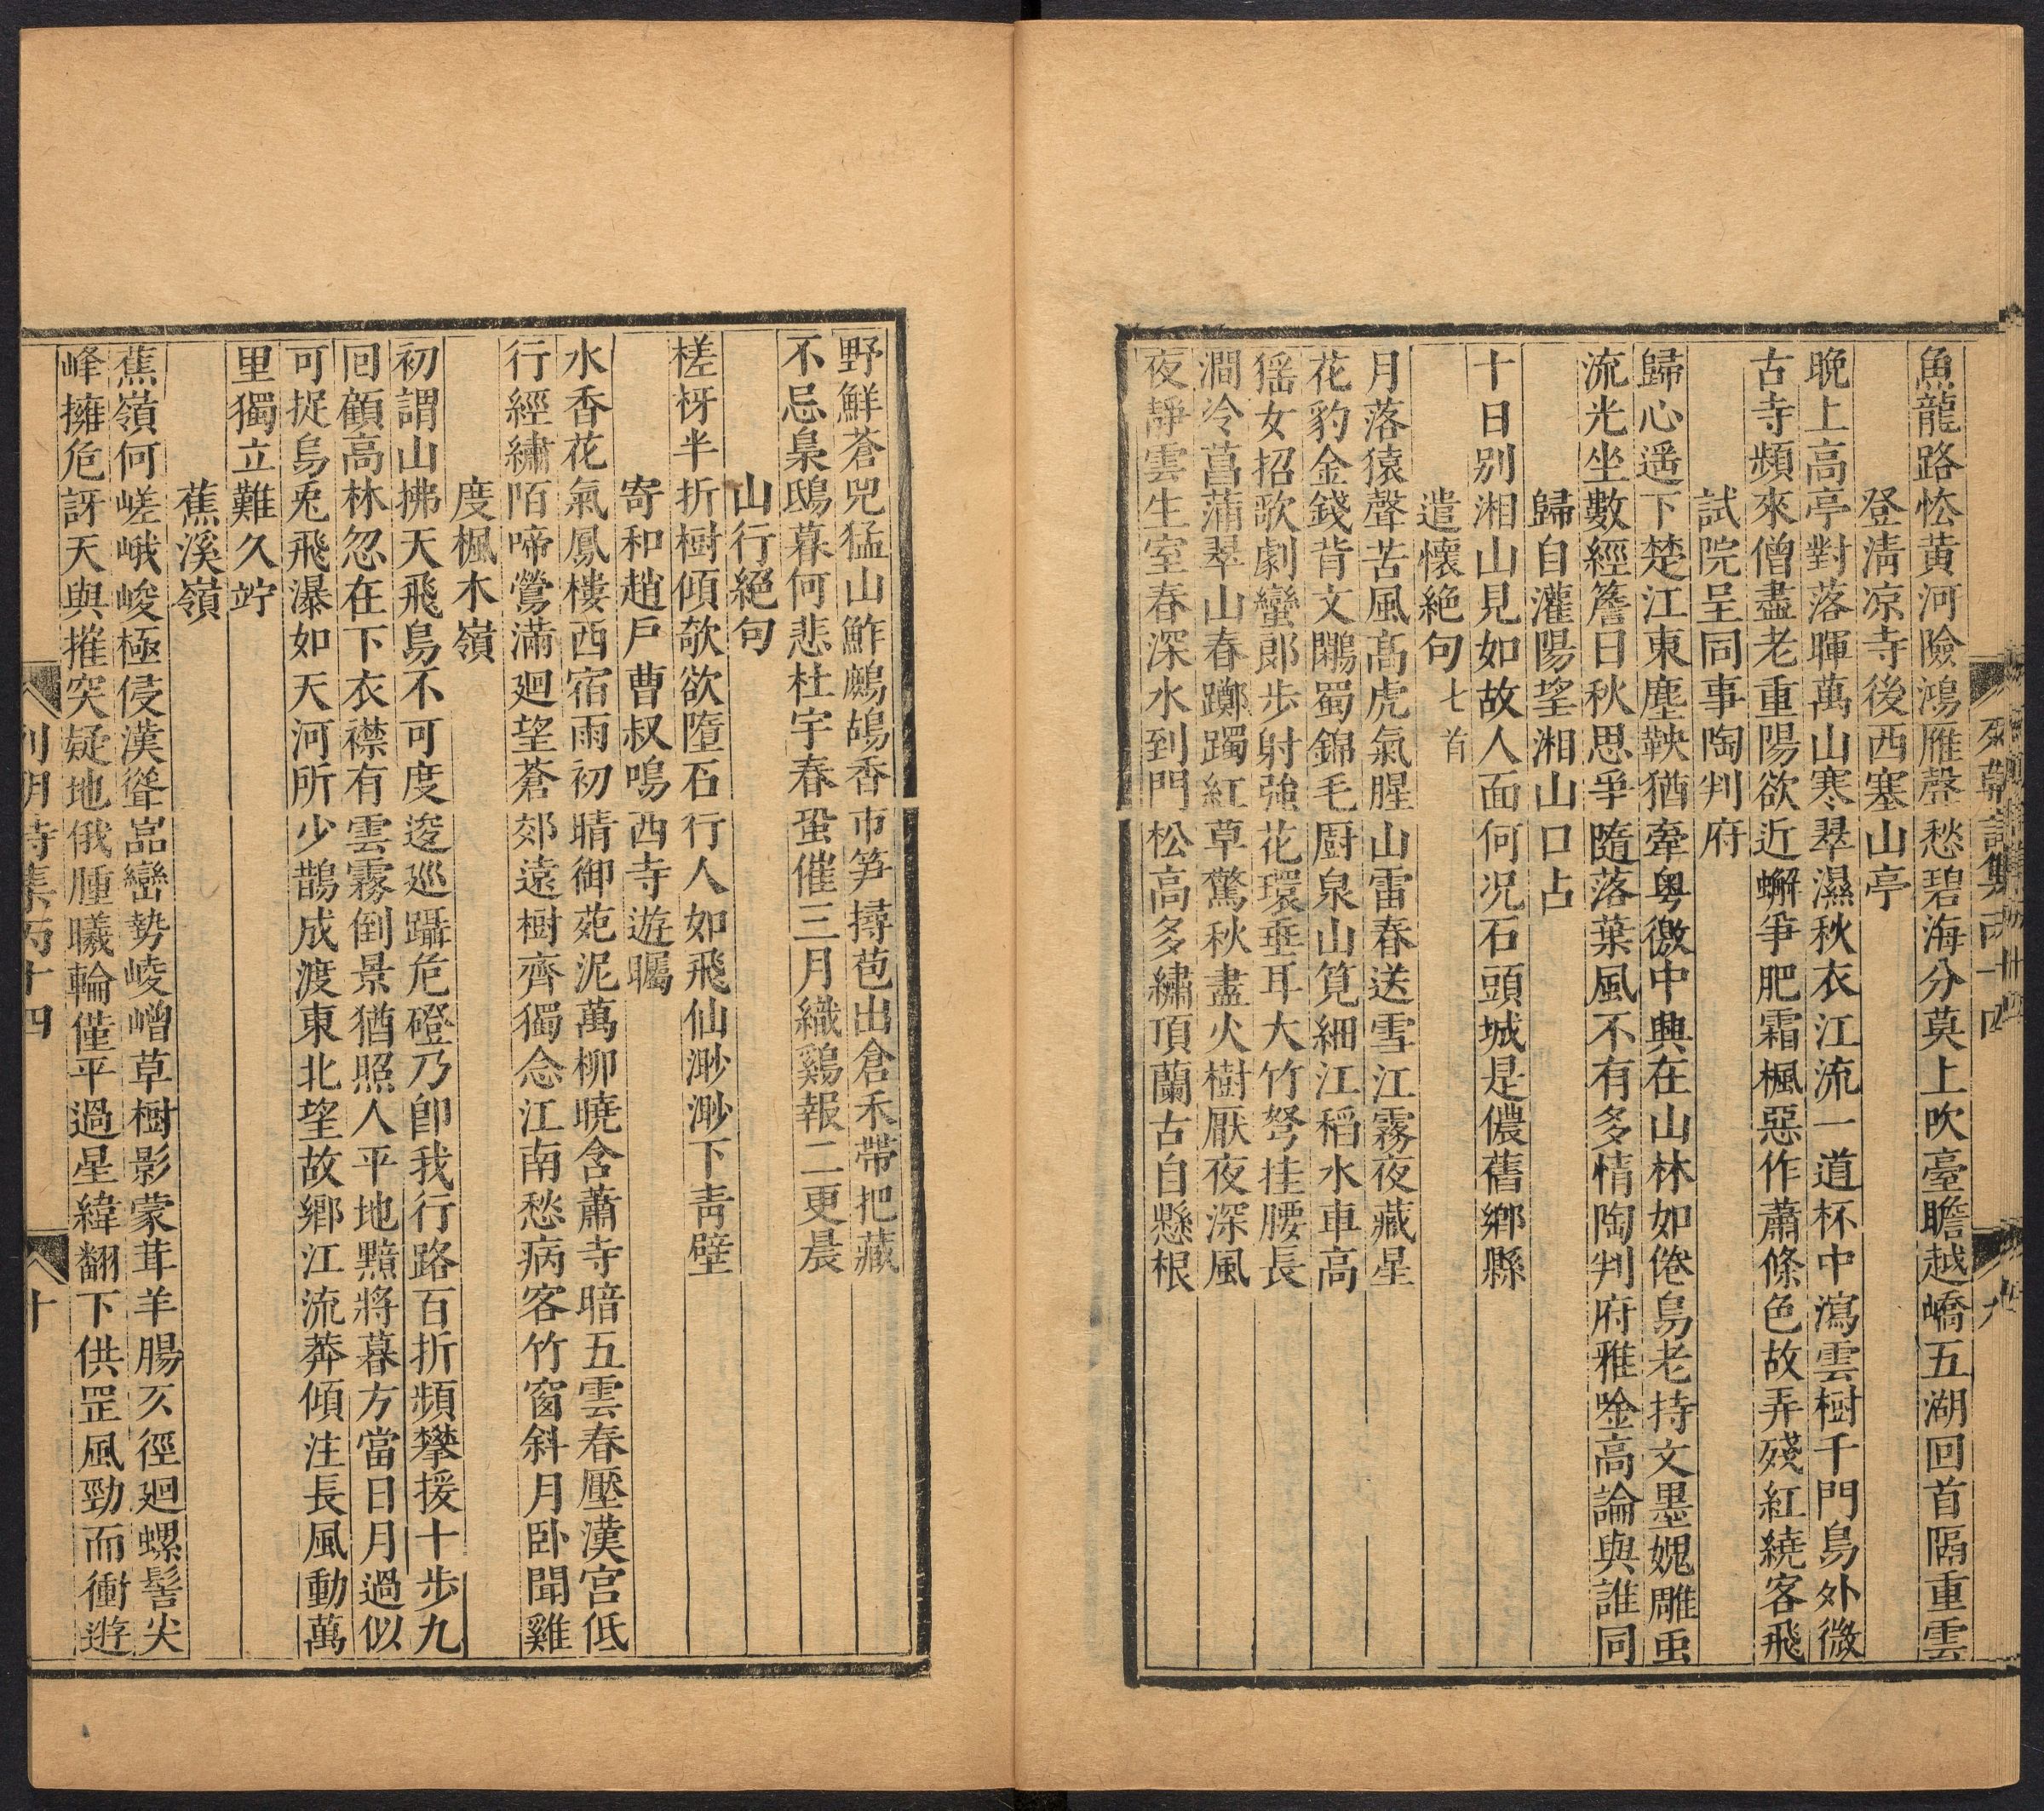 魚龍路恡黄河險鴻雁聲愁碧海分莫上吹臺瞻越嶠五湖回首隔重雲
登淸凉寺後西塞山亭
晚上高亭對落暉萬山寒翠濕秋衣江流一道杯中瀉雲樹千門鳥外微
古寺頻來僧盡老重陽欲近蠏爭肥霜楓惡作蕭條色故弄殘紅繞客飛
試院呈同事陶判府
歸心遥下楚江東塵鞅猶牽粤徼中興在山林如倦鳥老持文墨媿雕虫
流光坐數經簷日秋思爭隨落葉風不有多情陶判府雅唫高論與誰同
歸自灌陽望湘山口占
十日别湘山見如故人面何况石頭城是儂舊鄉縣
遣懷絶句七首
月落猿聲苦風高虎氣腥山雷春送雪江霧夜藏星
花豹金錢背文鷴蜀錦毛厨泉山筧細江稻水車高
猺女招歌劇蠻郎步射強花環垂耳大竹弩挂腰長
澗冷菖蒲翠山春躑躅紅草驚秋盡火樹厭夜深風
夜靜雲生室春深水到門松高多繡頂蘭古自懸根
野鮮蒼兕猛山鮓鷓鴣香市笋擣芭出倉禾帶把藏
不忌梟鴟暮何悲杜宇春蛩催三月織鷄報二更晨
山行絕句
槎枒半折樹傾欹欲墮石行人如飛仙渺渺下靑壁
寄和趙戸曹叔鳴西寺遊矚
水香花氣鳳樓西宿雨初晴御苑泥萬柳曉含蕭寺暗五雲春壓漢宫低
行經繡陌啼鶯滿廻望蒼郊遠樹齊獨念江南愁病客竹窗斜月卧聞雞
度楓木嶺
初謂山拂天飛鳥不可度逡巡躡危磴乃卽我行路百折頻攀援十步九
回顧高林忽在下衣襟有雲霧倒景猶照人平地黯將暮方當日月過似
可捉烏兎飛瀑如天河所少鵲成渡東北望故鄉江流莽傾注長風動萬
里獨立難久竚
蕉溪嶺
蕉嶺何嵯峨峻極侵漢聳嵒巒勢崚嶒草樹影蒙茸羊腸仄徑廻螺髻尖
峰擁危訝天與摧突疑地俄腫曦輪僅平過星緯翻下供罡風勁而衝遊
列朝詩集丙十四
十